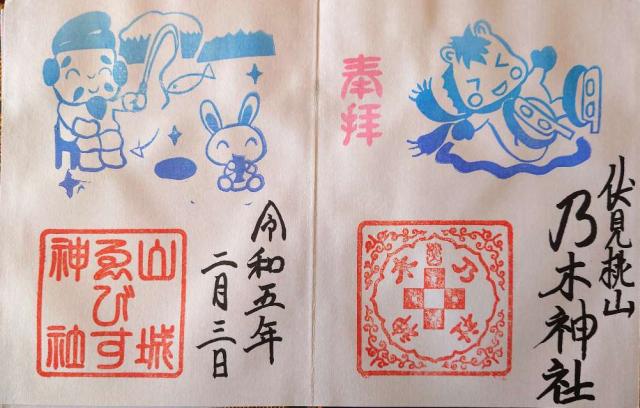 奉拝
伏見桃山
乃木神社
令和五年
二月三日
山城
ゑびす
神社